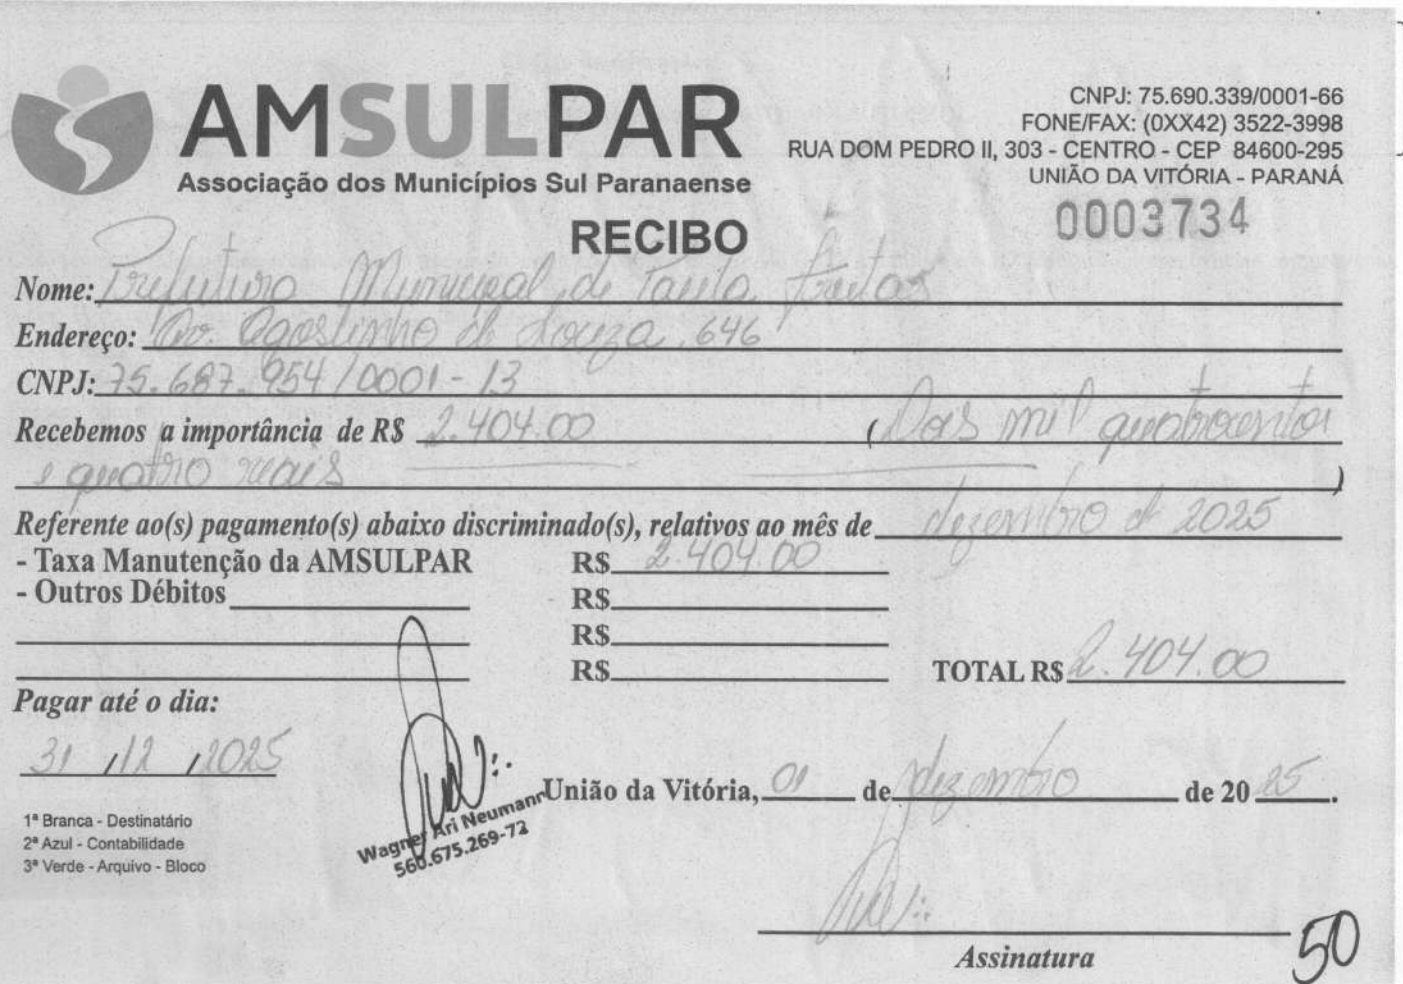 AMSULPAR
Associação dos Municípios Sul Paranaense
CNPJ: 75.690.339/0001-66
FONE/FAX: (0XX42) 3522-3998
RUA DOM PEDRO II, 303 - CENTRO - CEP 84600-295
UNIÃO DA VITÓRIA - PARANÁ
RECIBO
0003734
Nome: Prefeitura Municipal de Paula Freitas
Endereço: Av. Agostinho de Souza, 646
CNPJ: 75.687.954/0001-13
Recebemos a importância de R$ 2.404.00 (Dois mil quatrocentos
e quatro reais)
Referente ao(s) pagamento(s) abaixo discriminado(s), relativos ao mês de dezembro de 2025
- Taxa Manutenção da AMSULPAR R$ 2.404.00
- Outros Débitos R$
R$
R$ TOTAL R$ 2.404.00
Pagar até o dia:
31/12/2025
União da Vitória, 01 de dezembro de 2025.
Wagner Ari Neumann
560.675.269-72
1ª Branca - Destinatário
2ª Azul - Contabilidade
3ª Verde - Arquivo - Bloco
Assinatura
50